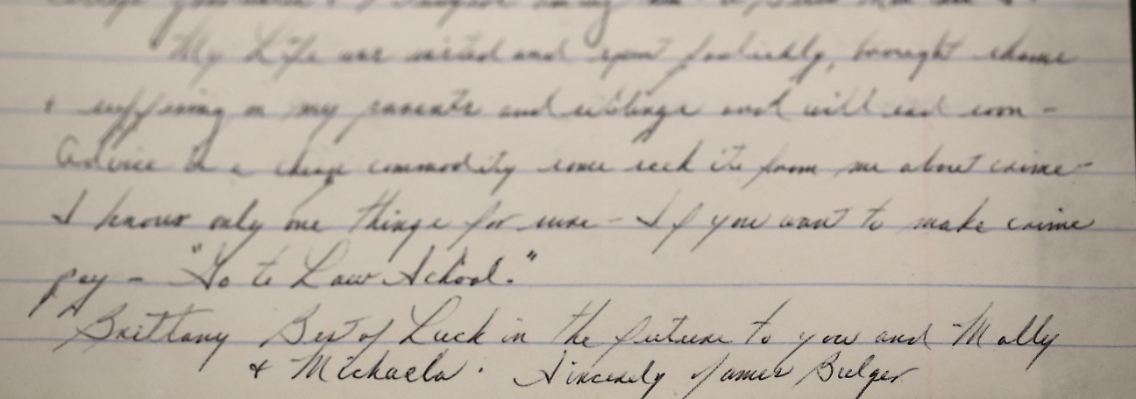 My Life was wasted and spent foolishly, brought shame
& suffering on my parents and siblings and will end soon -
Advice is a cheap commodity some seek it from me about crime -
I know only one thing for sure - If you want to make crime
pay - "Go to Law School."
Brittany Best of Luck in the future to you and Mally
& Michaela. Sincerely James Bulger